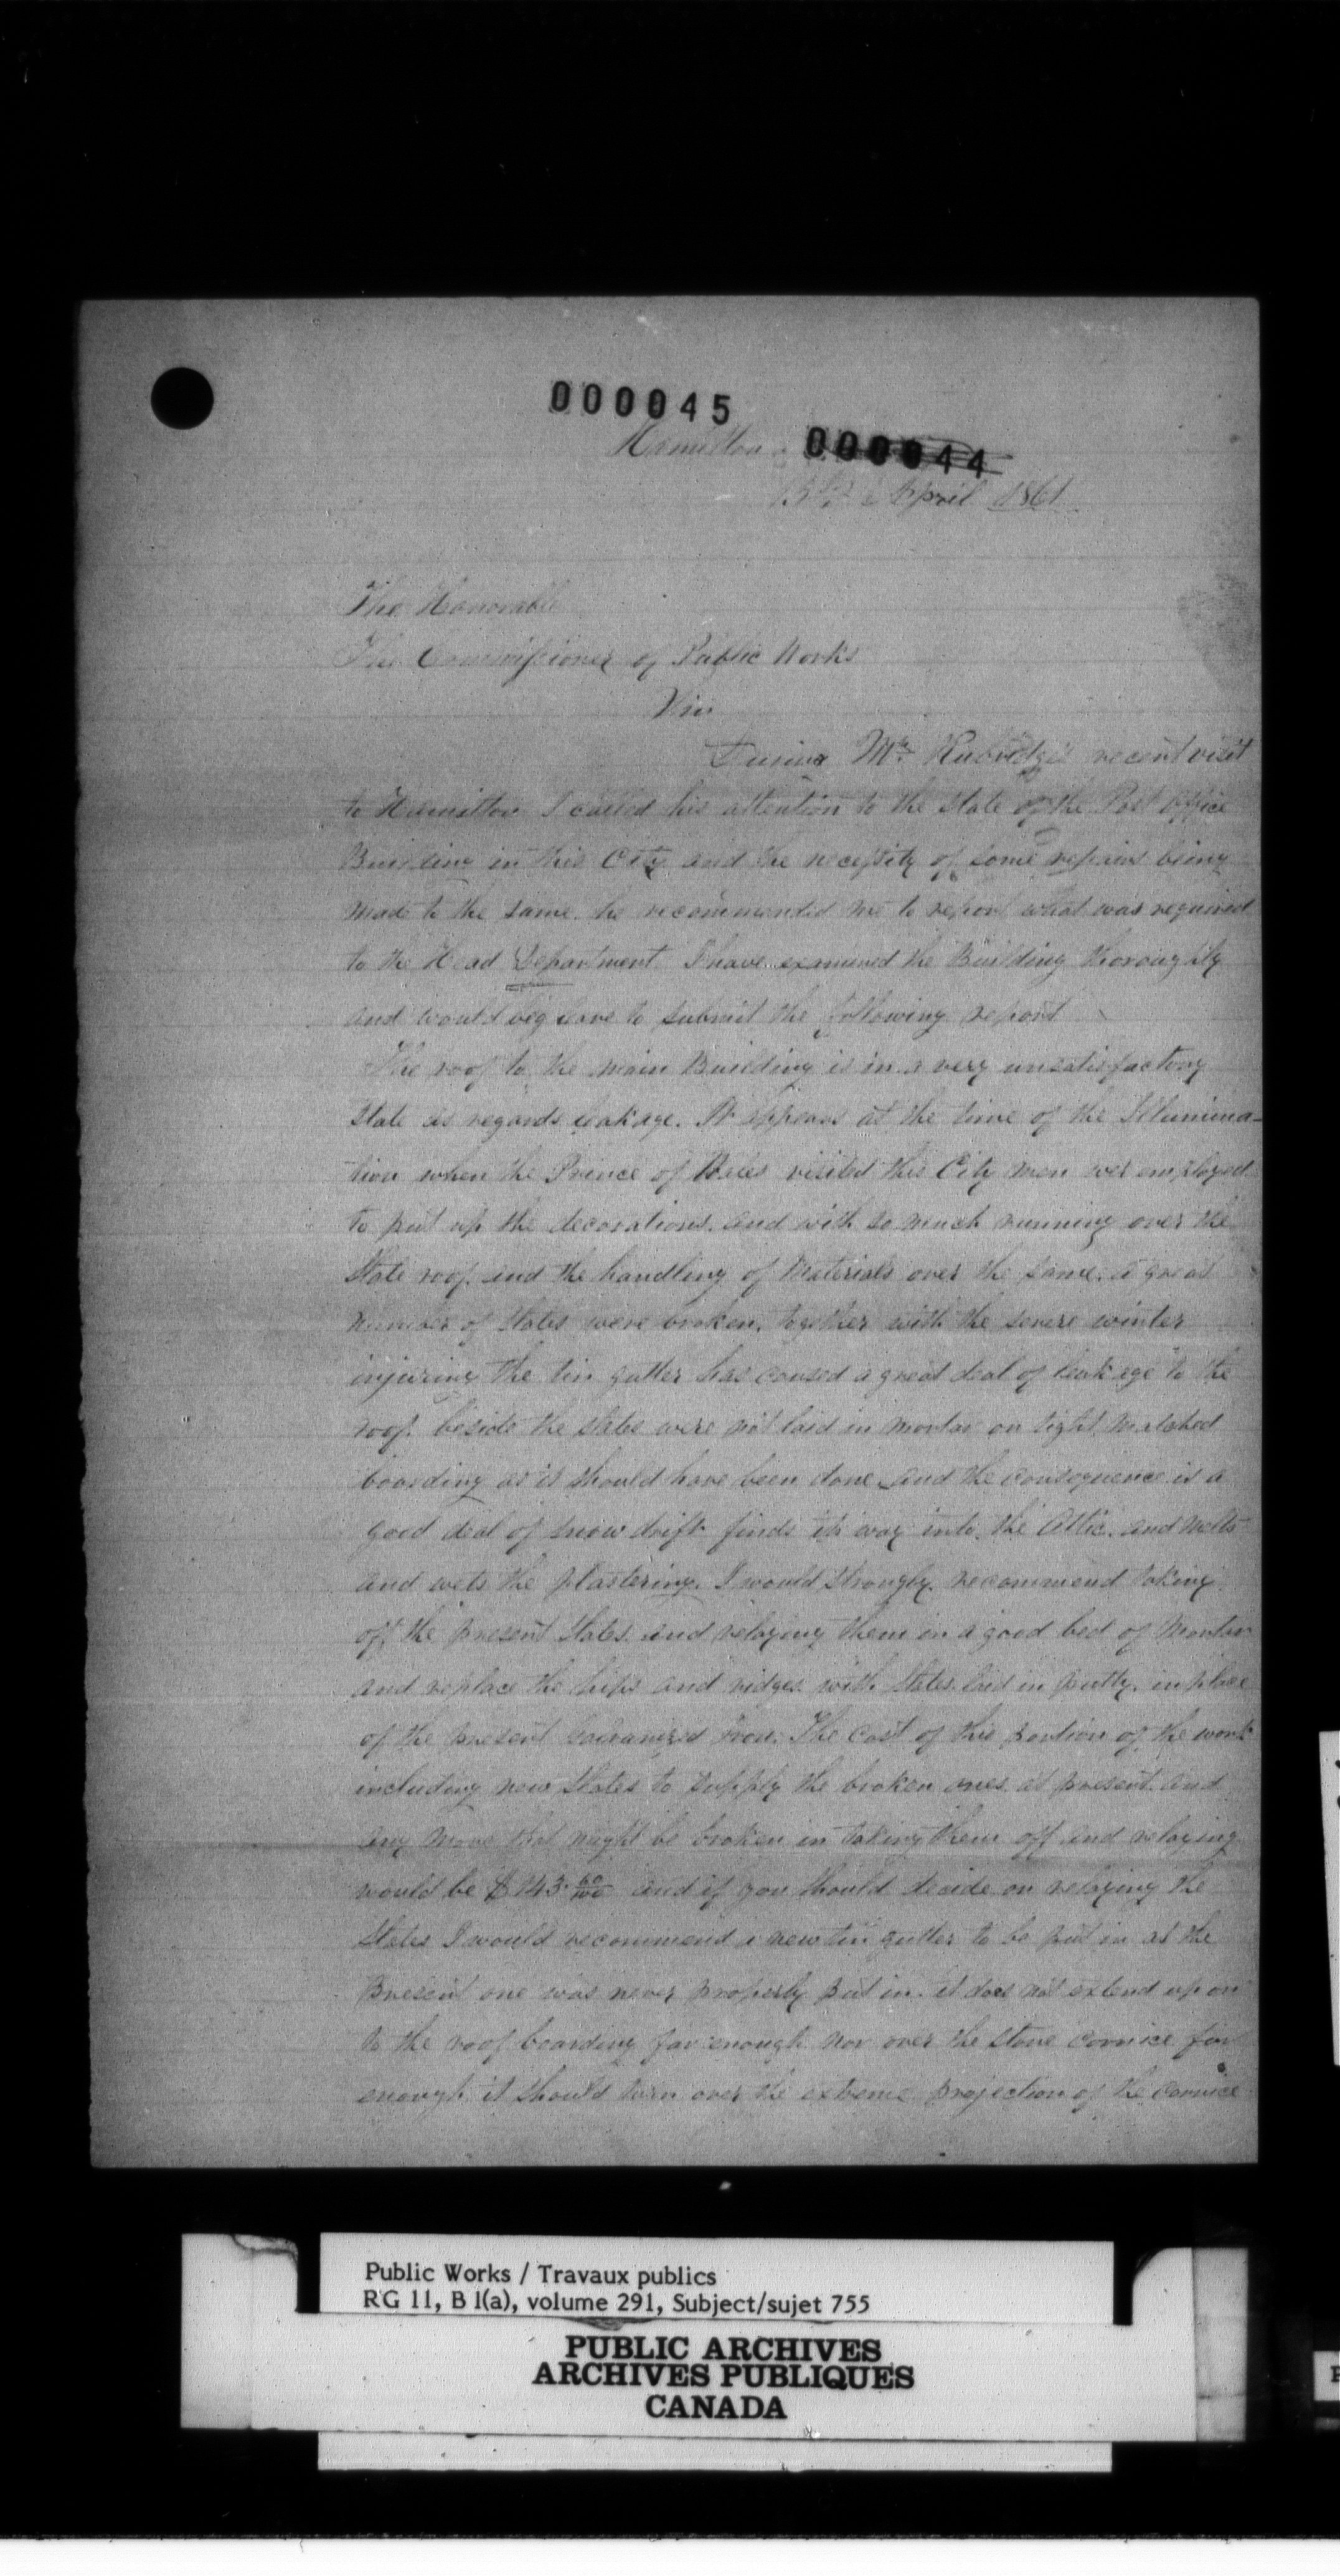 000045
Hamilton 000044
April 1861
The Honorable
The Commissioner of Public Works
Sir
During Mr. Rubidge's recent visit
to Hamilton I called his attention to the state of the Post Office
Building in this City and the necessity of some repairs being
made to the same. he recommended me to report what was required
to the Head Department. I have examined the Building thoroughly
and would beg leave to submit the following report
The roof to the main Building is in a very unsatisfactory
state as regards leakage. It appears at the time of the Illumina-
tion when the Prince of Wales visited this City men wer employed
to put up the decorations. and with so much running over the
slate roof and the handling of Materials over the same. a great
number of slates were broken. together with the severe winter
injuring the tin gutter has caused a great deal of leakage to the
roof. beside the slates were not laid in mortar on tight matched
boarding as it should have been done and the consequence is a
good deal of snow drift finds its way into the Attic. and melts
and wets the plastering. I would strongly recommend taking
off the present slates and relaying them in a good bed of Mortar
and replace the hips and ridges with slates laid in putty. in place
of the present Galvanized Iron. The cost of this portion of the work
including new slates to supply the broken ones at present and
any more that might be broken in taking them off and relaying
would be and if you should decide on relaying the
slates I would recommend a new tin gutter to be put in as the
present one was never properly put in. it does not extend up on
to the roof boarding far enough nor over the stone cornice far
enough it should turn over the extreme projection of the cornice
Public Works / Travaux publics
RG 11, B 1(a), volume 291, Subject/sujet 755
PUBLIC ARCHIVES
ARCHIVES PUBLIQUES
CANADA